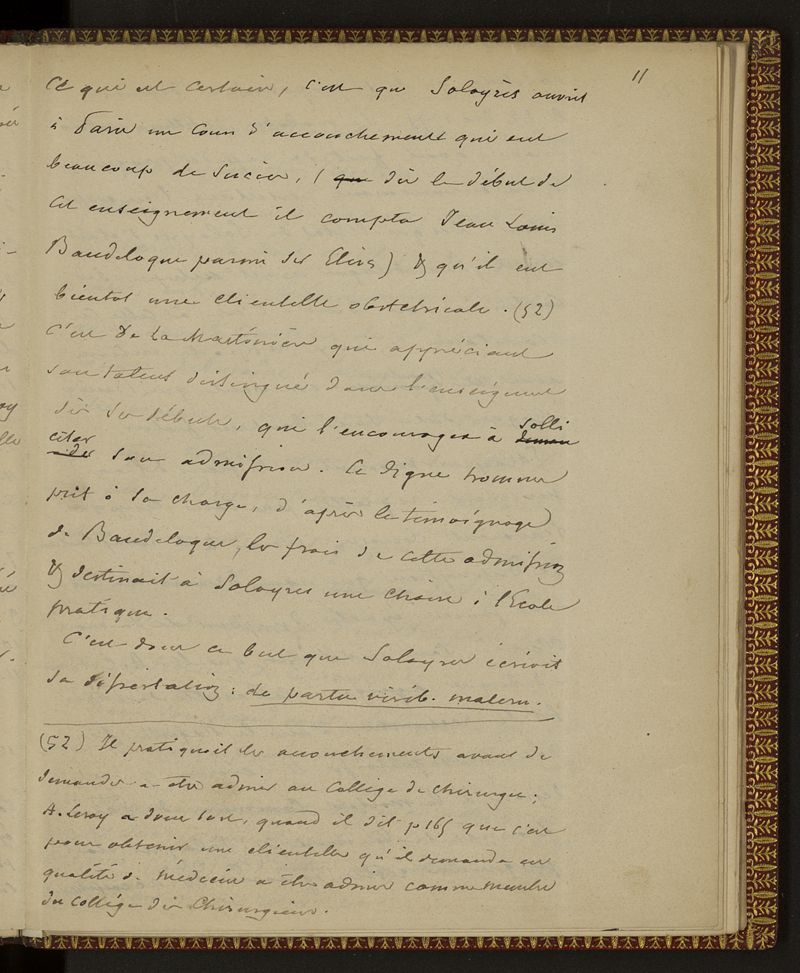 11
Ce qui est certain, c'est que Solayrès ouvrit
à Paris un Cours d'accouchements qui eut
beaucoup de succès, (que dès le début de
cet enseignement il compta Jean Louis
Baudelocque parmi ses Elèves) & qu'il eut
bientot une clientelle obstétricale. (52)
C'est De La Martinière qui appréciant
son talent distingué dans l'enseignement
dès ses débuts, qui l'encouragea à deman solli
ader citer son admission. Ce digne homme
prit à sa charge, d'après le témoignage
de Baudelocque, les frais de cette admission
& destinait à Solayres une chaire à l'Ecole
pratique.
C'est dans ce but que Solayres écrivit
sa dissertation : de partu virib. matern.
(52) Il pratiquait les accouchements avant de
demander a etre admis au Collège de chirurgie ;
A. Leroy a donc tort, quand il dit p 165 que c'est
pour obtenir une clientelle qu'il demanda en
qualité de médecin a être admis comme membre
du collége des Chirurgiens.